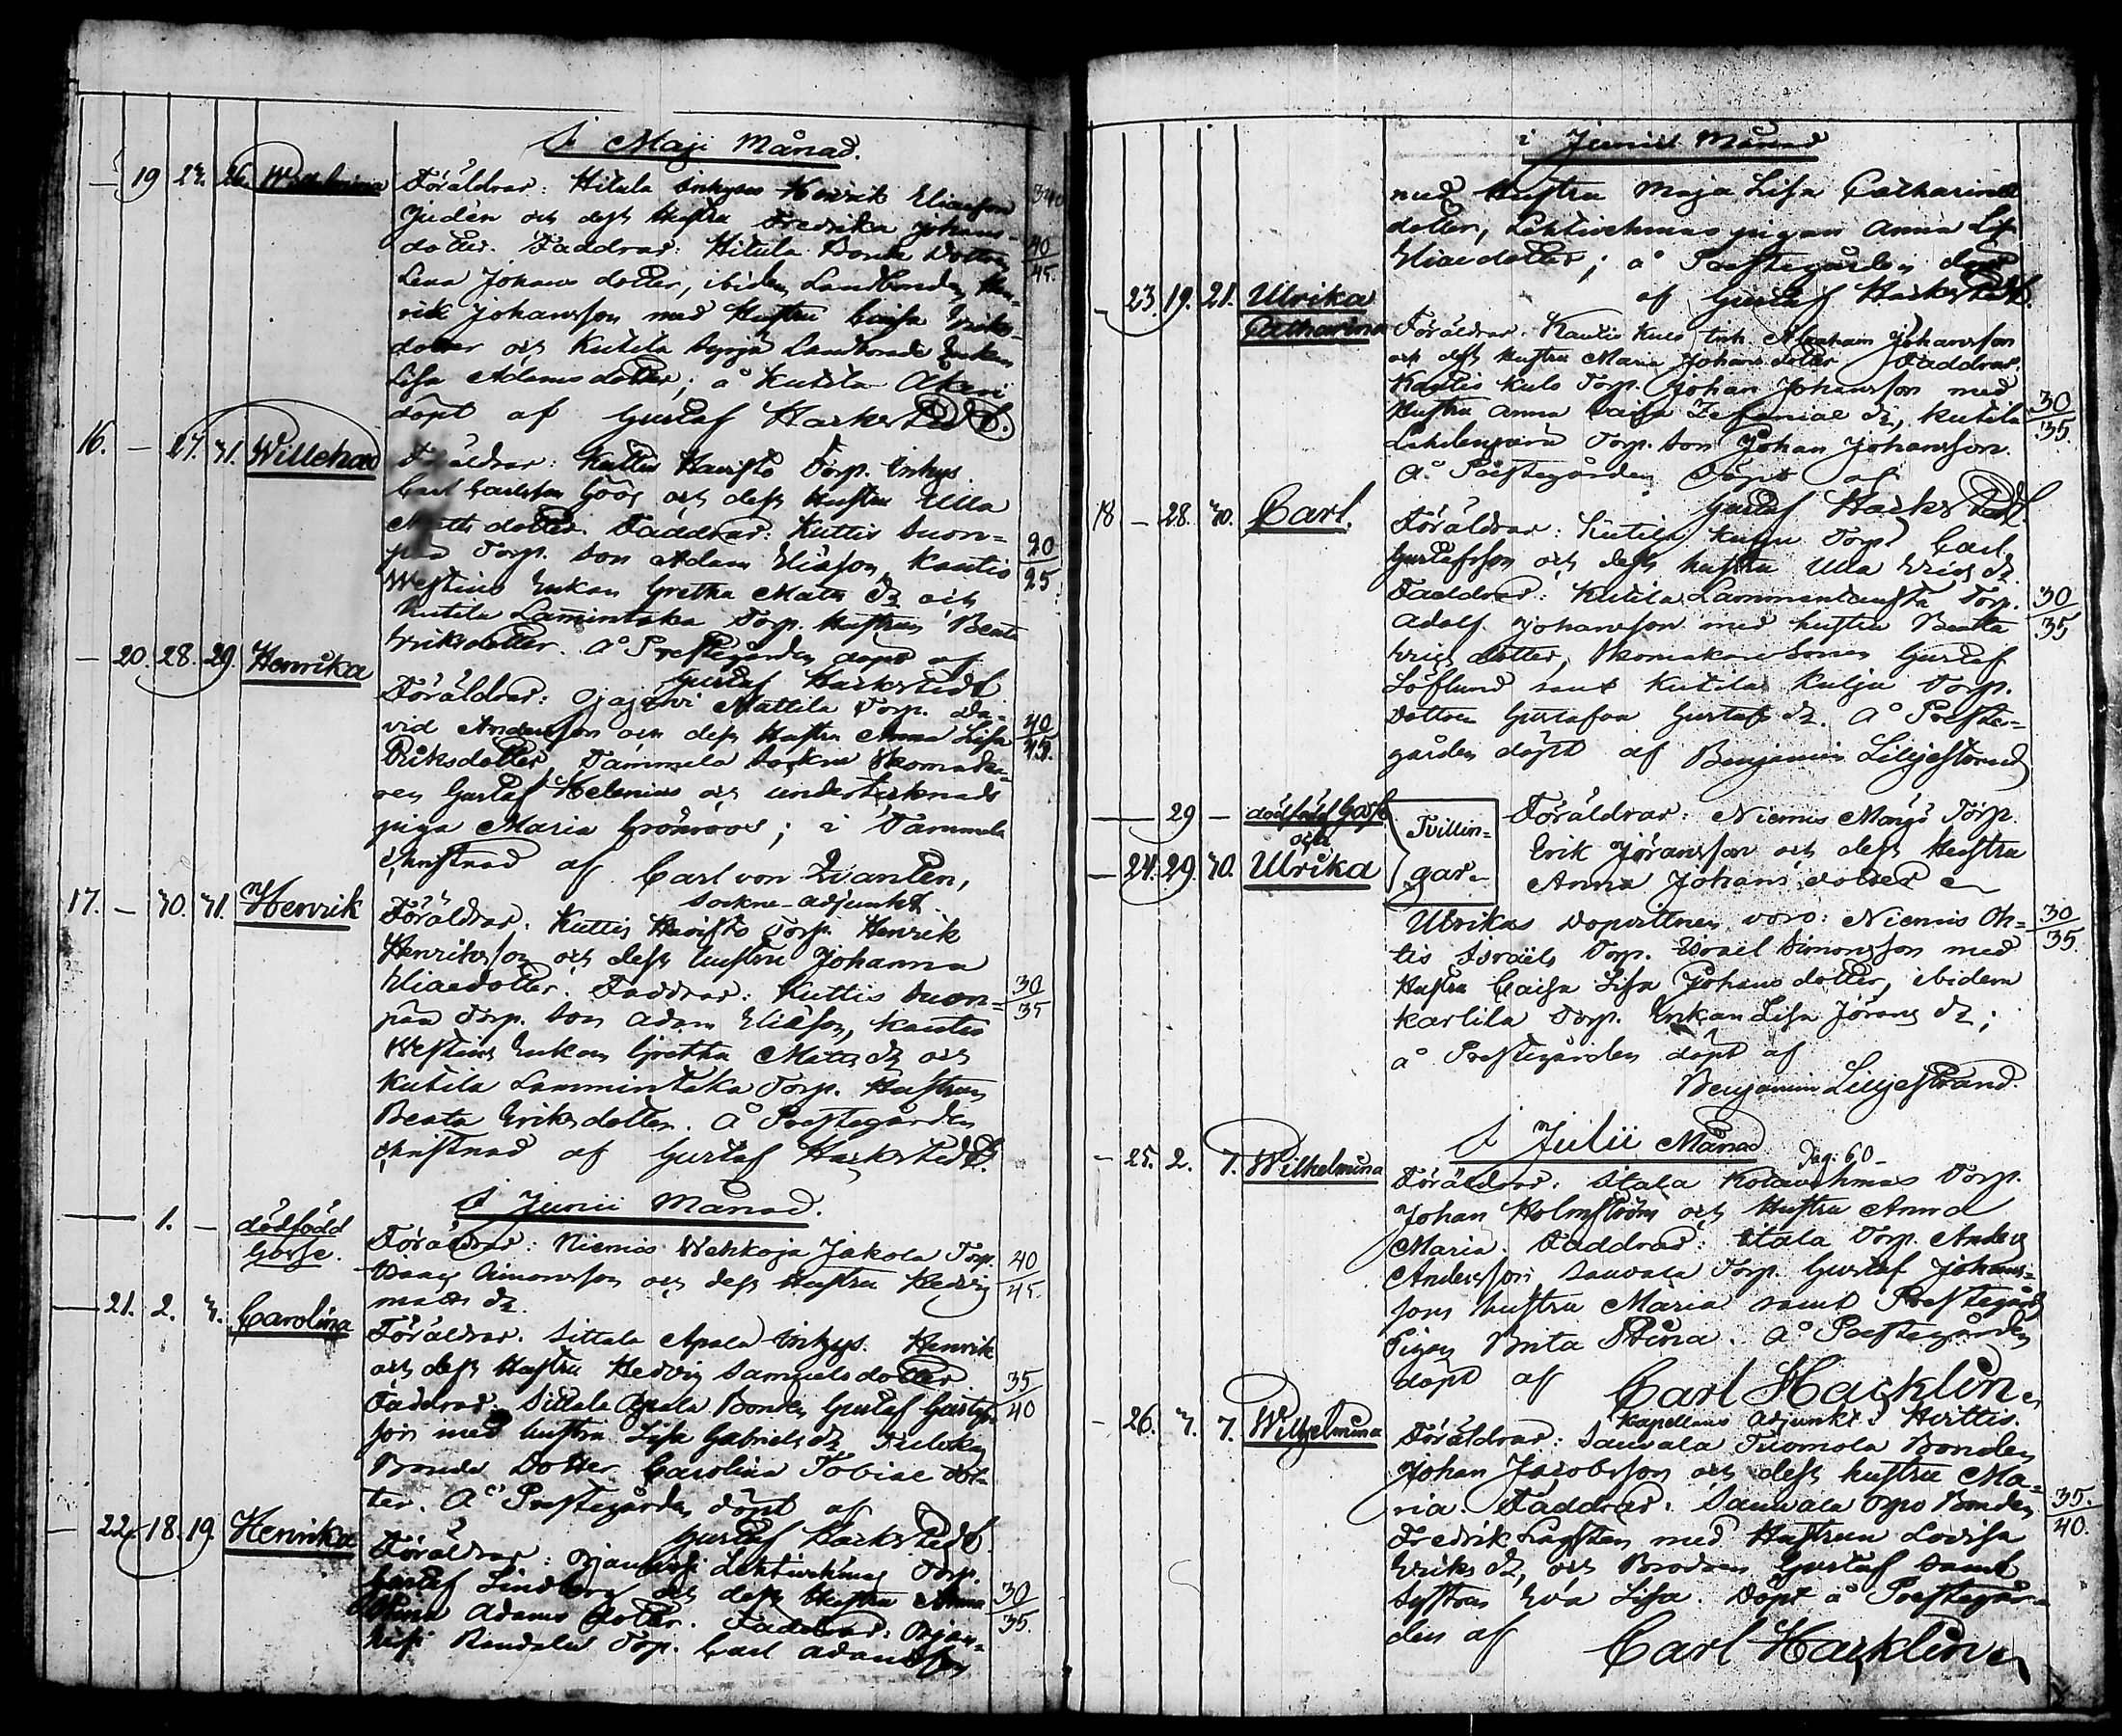 I Maji Månad.
19 27. 26. Wilhelmina Föräldrar: Hitula Inhyses Henrik Eliasson
Judén och dess Hustru Fredrika Johans-
dotter. Faddrar: Hitula Bonde Dottren 40/45.
Lena Johans dotter, ibidem Landbonden Hen-
rik Johansson med Hustru Caisa Eriks
dotter och Kutila Landbonde Enkan
Lisa Adamsdotter; å Kutila
döpt af Gustaf Hackstedt.
16. — 27. 31. Willehad Föräldrar: Kuttis Havisto Torp. Inhys.
Carl Carlsson Göös och dess Hustru Ulla
Matts dotter. Faddrar: Kuttis Suon- 20/25
pää Torp. Son Adam Eliasson, Kautis
Westins Enkan Gretha Matts dr och
Kutila Lamintaka Torp. Hustrun Beata
Eriksdotter. Å Prestegården döpt af
Gustaf Hackstedt
— 20. 28. 29. Henrika
Föräldrar: Mattila Torp. Da-
vid Andersson och dess Hustru Anna Lisa 40/45.
Eriksdotter, Tammela Sockne Skomaka-
ren Gustaf Helenius och undertecknads
piga Maria Grönroos; i Tammela
Christnad af Carl von Qvanten,
Sockne-adjunkt.
17. — 30. 31. Henrik
Föräldrar: Kuttis Havisto Torp. Henrik
Henriksson och dess hustru Johanna
Eliaedotter. Faddrar: Kuttis Suon- 30/35
pää Torp. Son Adam Eliasson, Kautis
Westins Enkan Gretha Matts dr och
Kutila Lammintaka Torp. Hustrun
Beata Eriksdotter. Å Prestegården
christnad af Gustaf Hackstedt.
I Junii Månad.
— 1. — dödfödd Gosse.
Föräldrar: Niemis Wehkoja Jakola Torp. 40/45.
Isaac Simonsson och dess Hustru Hedvig
Matts dr.
— 21. 2. 3. Carolina
Föräldrar. Sittala Apala Inhys. Henrik
och dess Hustru Hedvig Samuelsdotter 35/40
Faddrar: Sittala Apala Bonden Gustaf Gustafs-
son med hustru Lisa Gabriels dr,
Bonde Dotter Carolina Tobiae dot-
ter. Å Prestegården döpt af
Gustaf Hackstedt.
— 22. 18. 19. Henrika
Föräldrar: Torp.
Gustaf Lindberg och dess Hustru Anna 30/35.
Stina Adams dotter. Faddrar:
Torp. Carl Adamsson
i Junii Månad
med Hustru Maja Lisa Catharinae
dotter, pigan Anna Lisa
Eliaedotter; å Prestegården döpt
af Gustaf Hackstedt.
— 23. 19. 21. Ulrika Catharina
Föräldrar. Kautis Kulo Abraham Johansson
och dess Hustru Maria Johans dotter Faddrar.
Kautis Kulo Torp. Johan Johansson med
Hustru Anna Caisa Zefaniae dr, Kutila 30/35.
Torp. Son Johan Johansson.
Å Prestegården döpt af
Gustaf Hackstedt.
18 — 28. 30. Carl.
Föräldrar: Kutila Torp. Carl
Gustafsson och dess hustru Ulla Erics dr.
Faddrar: Kutila Torp. 30/35
Adolf Johansson med hustru Beata
Erics dotter, Skomakare Sonen Gustaf
Löflund samt Kutila Kulju Torp.
Dottren Gustafva Gustafs dr. Å Preste-
gården döpt af Benjamin Liljestrand
— 29 — dödfödd Gosse
och
— 24. 29. 30. Ulrika
Tvillin-
gar.
Föräldrar: Niemis Torp.
Erik Jöransson och dess Hustru
Anna Johans dotter
Ulrikas Dopvittnen voro: Niemis Oh- 30/35.
tis Israëls Torp. Israel Simonsson med
Hustru Caisa Lisa Johans dotter, ibidem
Karlila Torp. Enkan Lisa Jörans dr;
å Prestegården döpt af
Benjamin Liljestrand.
I Julii Månad
Pag: 60
— 25. 2. 7. Wilhelmina
Föräldrar. Torp.
Johan Holmström och Hustru Anna
Maria. Faddrar: Torp. Anders
Andersson, Sauvala Torp. Gustaf Johans-
sons hustru Maria samt Prestegårds
Pigan Brita Stina. Å Prestegården
döpt af Carl Hacklin
Kapellans adjunkt i Hvittis.
— 26. 3. 7. Wilhelmina
Föräldrar: Sauvala Tuomola Bonden
Johan Jacobsson och dess hustru Ma-
ria. Faddrar. Sauvala Bonden 35./40.
Fredrik med Hustrun Lovisa
Eriks dr, och Brodren Gustaf samt
Systren Eva Lisa. Döpt å Prestegår-
den af Carl Hacklin